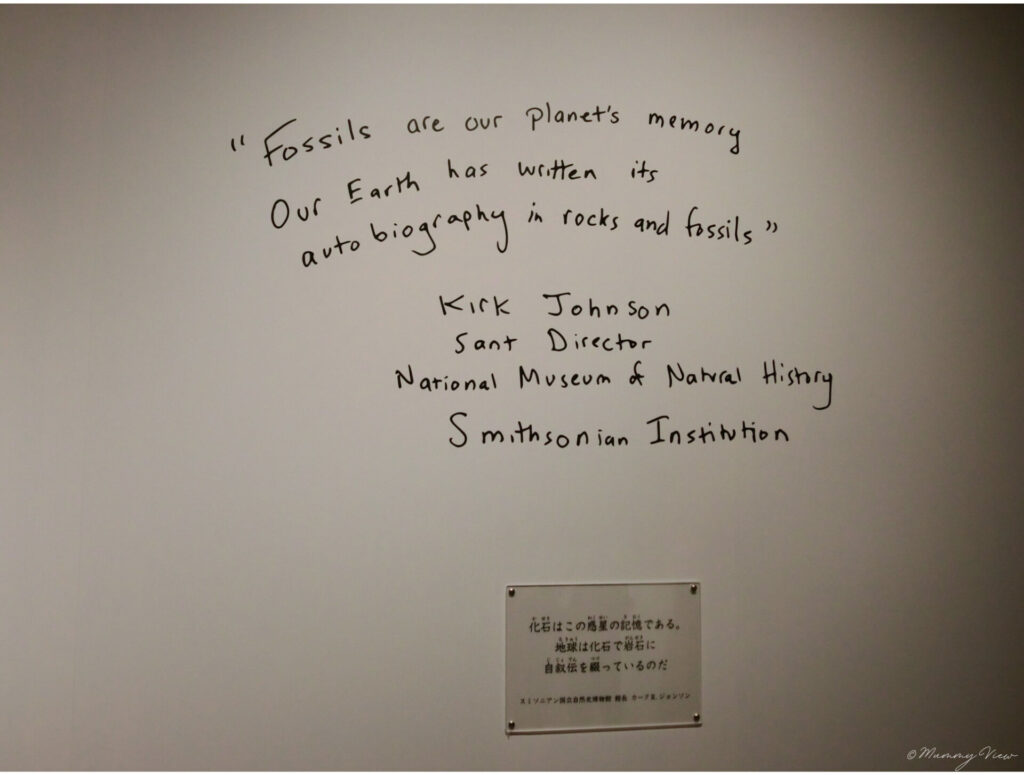 "Fossils are our planet's memory
Our Earth has written its
autobiography in rocks and fossils"
Kirk Johnson
Sant Director
National Museum of Natural History
Smithsonian Institution
化石はこの惑星の記憶である。
地球は化石で岩石に
自叙伝を綴っているのだ
スミソニアン国立自然史博物館 館長 カーク R. ジョンソン
©Mummy View